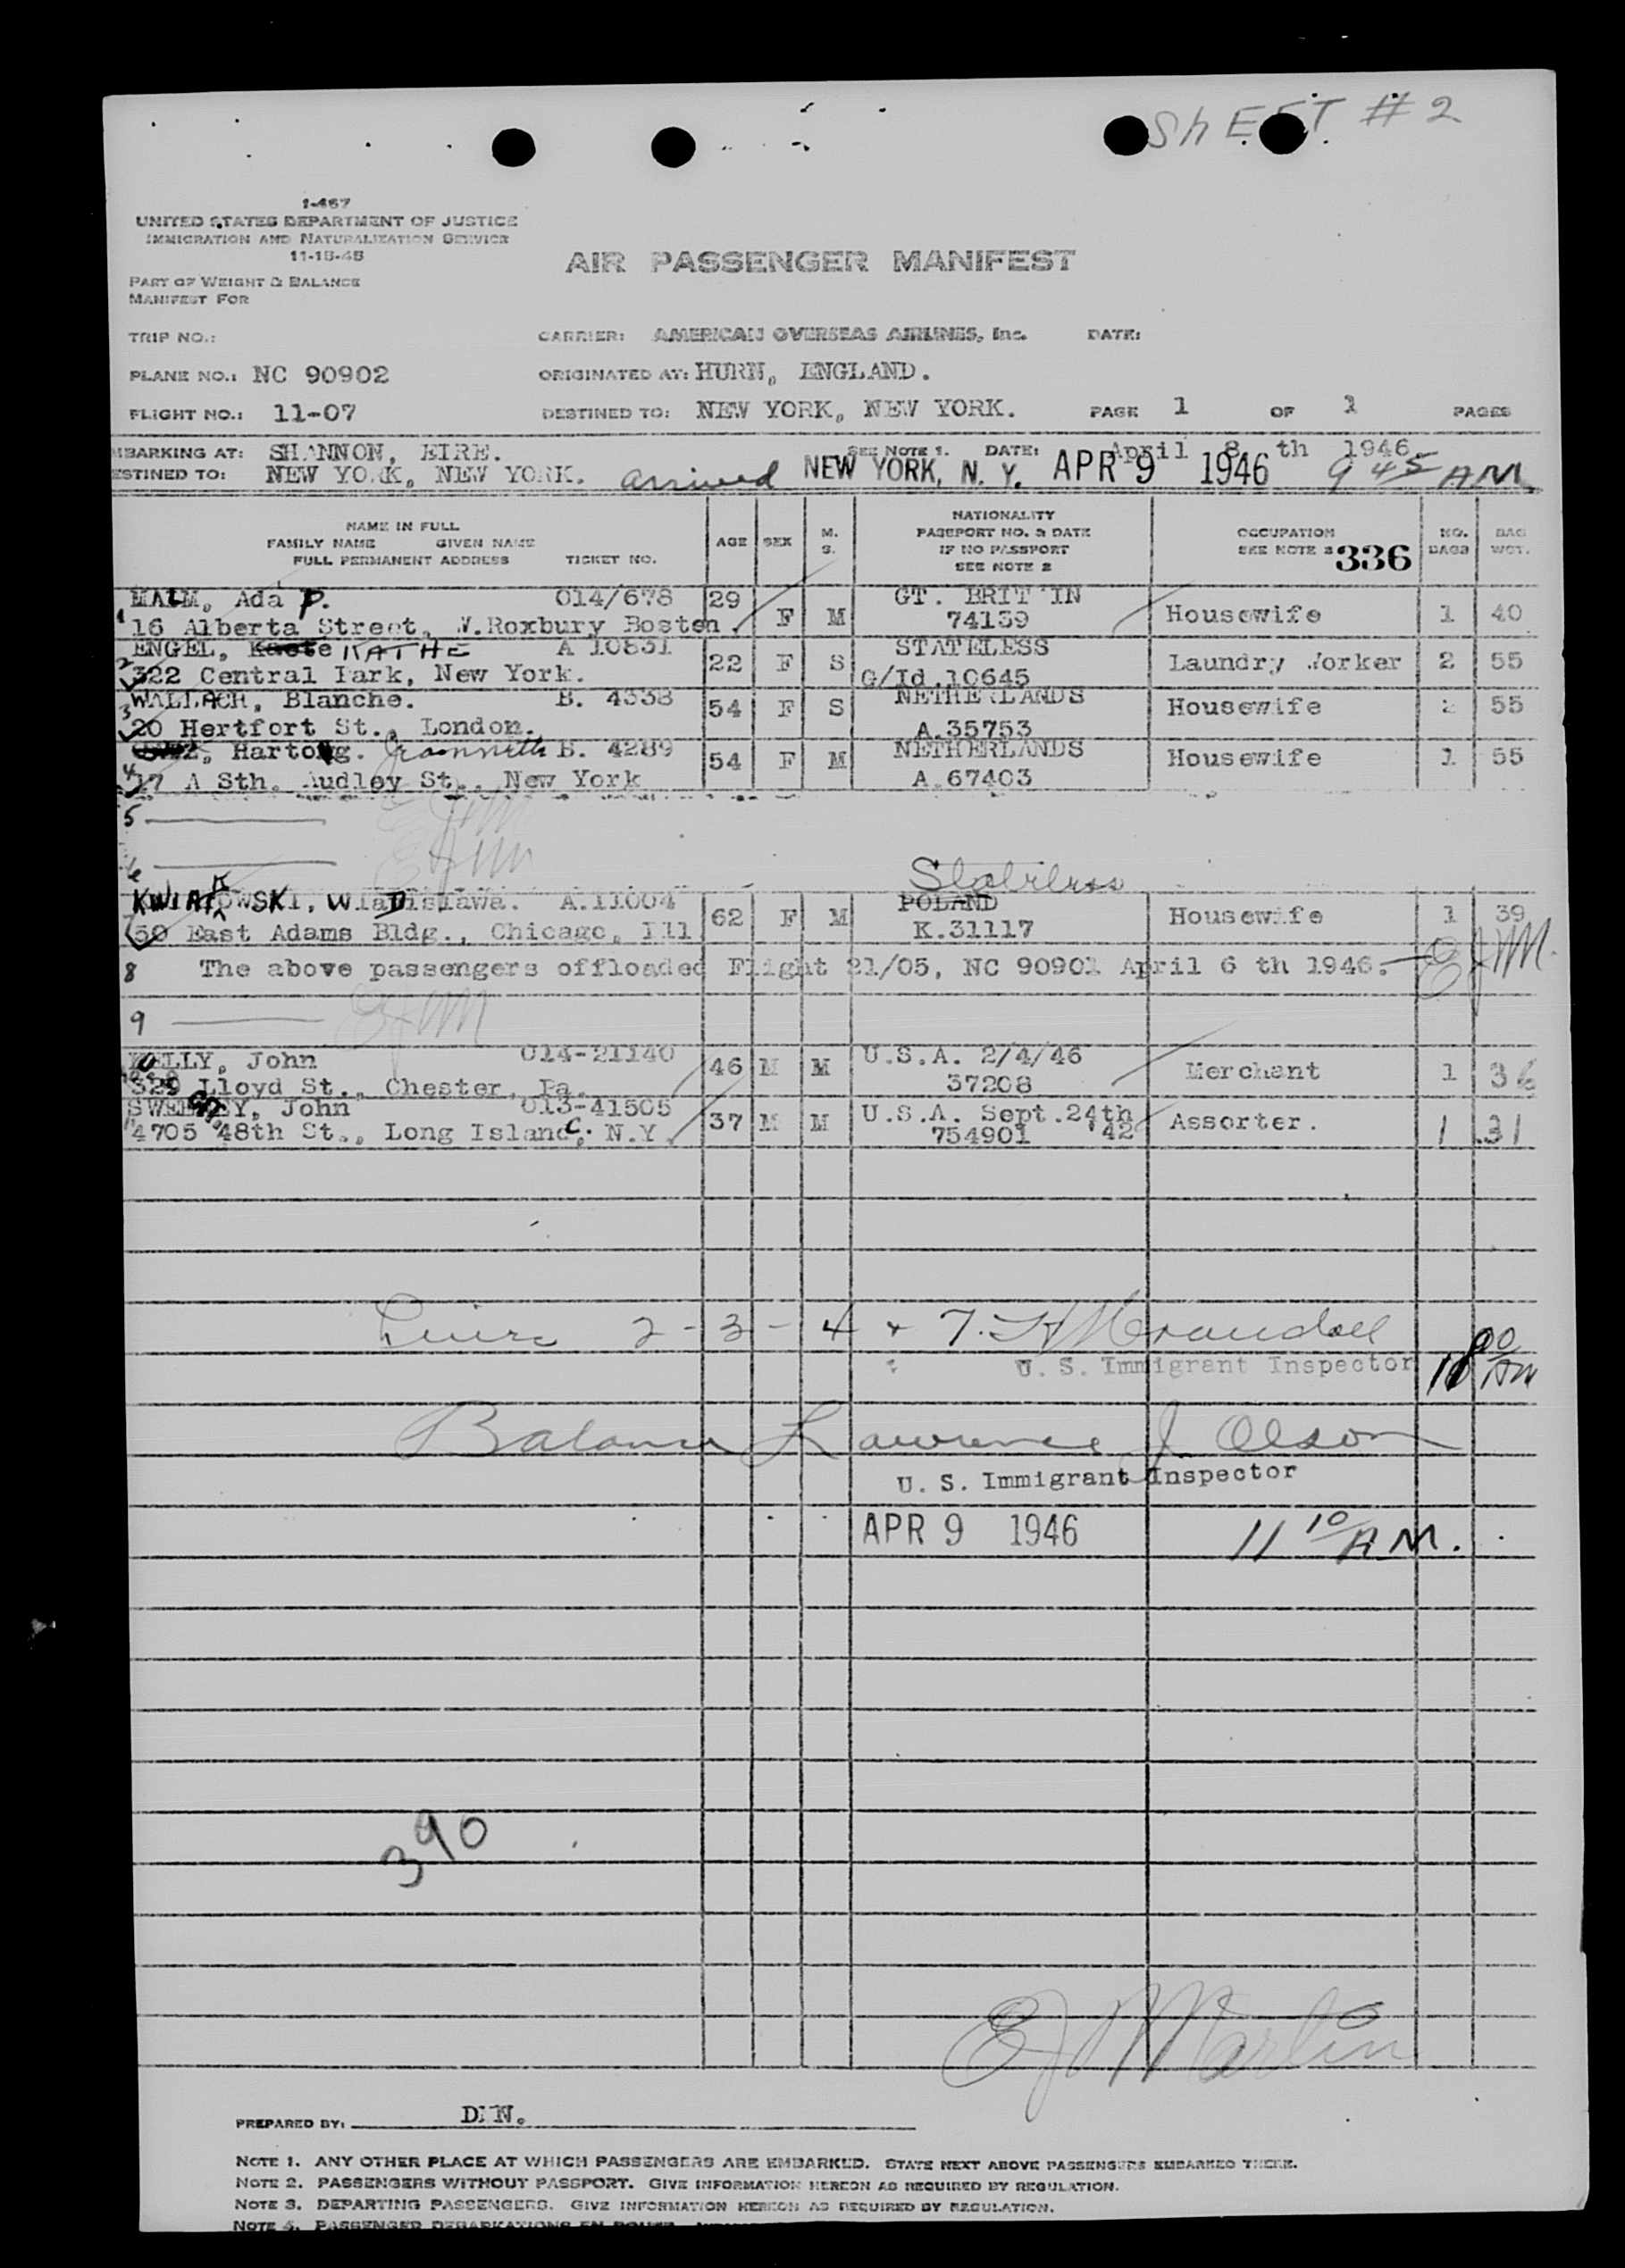 ShEET #2
I-467
UNITED STATES DEPARTMENT OF JUSTICE
IMMIGRATION AND NATURALIZATION SERVICE
11-15-45
AIR PASSENGER MANIFEST
PART OF WEIGHT & BALANCE
MANIFEST FOR
TRIP NO.: CARRIER: AMERICAN OVERSEAS AIRLINES, Inc. DATE:
PLANE NO.: NC 90902 ORIGINATED AT: HURN, ENGLAND.
FLIGHT NO.: 11-07 DESTINED TO: NEW YORK, NEW YORK. PAGE 1 OF 1 PAGES
MBARKING AT: SHANNON, EIRE. SEE NOTE 1. DATE: April 8 th 1946
ESTINED TO: NEW YORK, NEW YORK. arrived NEW YORK, N. Y. APR 9 1946 9 45 AM
NAME IN FULL
FAMILY NAME GIVEN NAME
FULL PERMANENT ADDRESS TICKET NO. AGE SEX M. S. NATIONALITY PASSPORT NO. & DATE IF NO PASSPORT SEE NOTE 2 OCCUPATION SEE NOTE 3 336 NO. BAGS BAG WGT.
1 MALM, Ada P. 014/678 29 F M GT. BRIT IN 74139 Housewife 1 40
16 Alberta Street, W.Roxbury Boston
2 ENGEL, Kaete KATHE A 10831 22 F S STATELESS G/Id.10645 Laundry Worker 2 55
322 Central Park, New York.
3 WALLACH, Blanche. B. 4338 54 F S NETHERLANDS A.35753 Housewife 2 55
20 Hertfort St., London.
4 Hartog. Jeannette B. 4289 54 F M NETHERLANDS A.67403 Housewife 1 55
17 A Sth. Audley St., New York
5
EJM
6
EJM
Stateless
7 KWIATKOWSKI, Wladislawa. A.11004 62 F M POLAND K.31117 Housewife 1 39
50 East Adams Bldg., Chicago, Ill
8 The above passengers offloaded Flight 21/05, NC 90901 April 6 th 1946. EJM.
9 EJM
10 KELLY, John 014-21140 46 M M U.S.A. 2/4/46 37208 Merchant 1 36
329 Lloyd St., Chester, Pa.
SWEENEY, John 013-41505 37 M M U.S.A. Sept.24th '42 754901 Assorter. 1 31
4705 48th St., Long Island C. N.Y.
2 - 3 - 4 + 7.
U. S. Immigrant Inspector AM
Balance Lawrence J Olson
U. S. Immigrant Inspector
APR 9 1946 11 10 AM.
390
EJ Martin
PREPARED BY: D.N.
NOTE 1. ANY OTHER PLACE AT WHICH PASSENGERS ARE EMBARKED. STATE NEXT ABOVE PASSENGERS EMBARKED THERE.
NOTE 2. PASSENGERS WITHOUT PASSPORT. GIVE INFORMATION HEREON AS REQUIRED BY REGULATION.
NOTE 3. DEPARTING PASSENGERS. GIVE INFORMATION HEREON AS REQUIRED BY REGULATION.
PASSENGER DEBARKATIONS EN ROUTE.